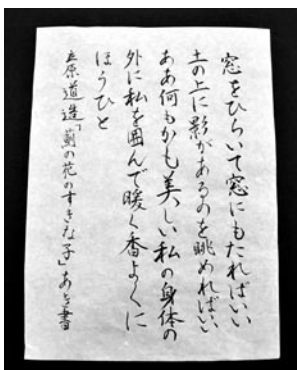 窓をひらいて窓にもたればいい
土の上に影があるのを眺めればいい
ああ何もかも美しい私の身体の
外に私を囲んで暖く香よくに
ほうひと
立原道造「薊の花のすきな子」あを書